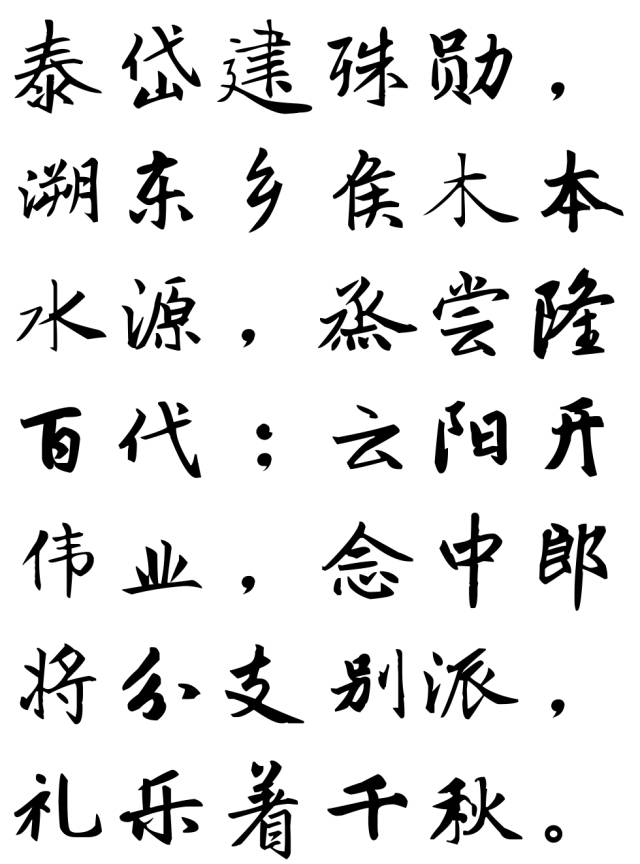 泰岱建殊勋，
溯东乡侯木本
水源，烝尝隆
百代；云阳开
伟业，念中郎
将分支别派，
礼乐着千秋。